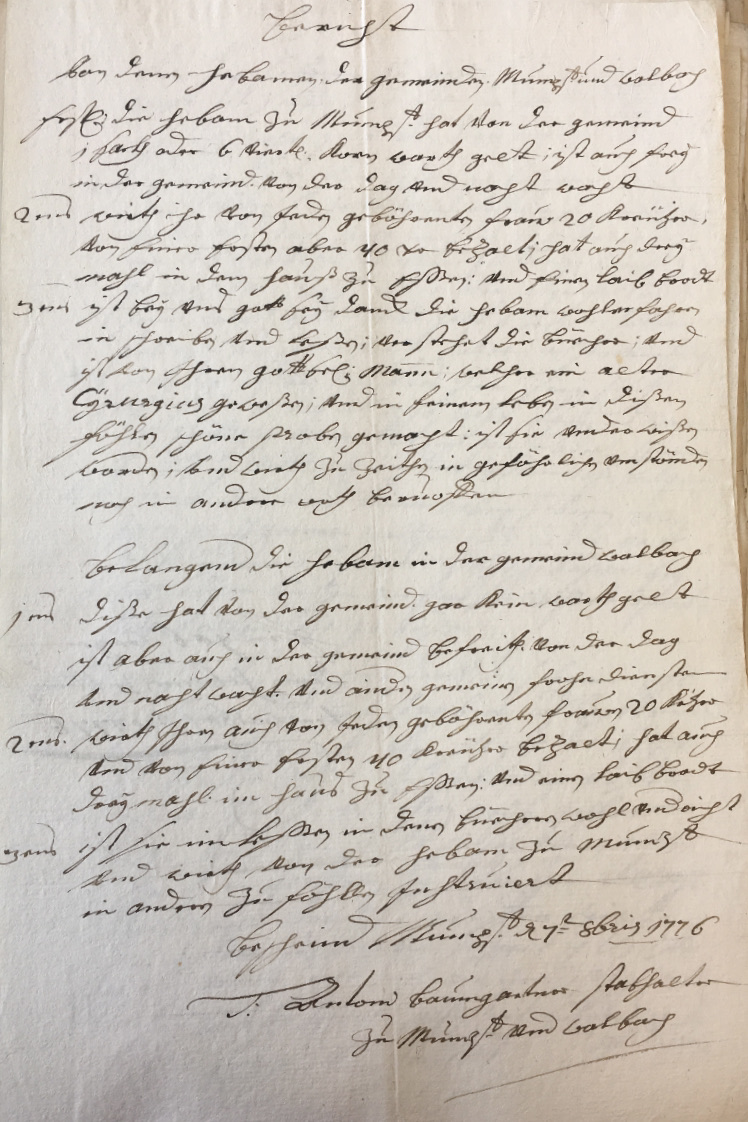 Bericht
von denen hebamen der gemeinden Mumpf und walbach
Erstl: die hebam zu Mumpf hat von der gemeind
1 sackh oder 6 viertl. Korn warth gelt; ist auch frey
in der gemeind von der dag und nacht wacht
2tens wirth ihr von Jeden gebährenten frauw 20 Kreützer,
von Einer Ersten aber 40 xr bezalt; hat auch drey
mahl in dem hauß zu Essen: und Einen laib brodt
3tens ist bey uns gott sey danck die hebam wohl erfahren
in schreiben und leßen; verstehet die büecher; und
ist von Ihren gott sel: Mann; welcher ein alter
Cÿrurgicus geweßen; und in seinem leben in dißen
föhlen schöne proben gemacht: ist sie underwißen
worden; und wirth zu zeithen in gefährlichen umständen
noch in andere orth beruoffen
belangend die hebam in der gemeind walbach
1tens diße hat von der gemeind gar Kein warth gelt
ist aber auch in der gemeind befreith von der dag
und nacht wacht. und anderen gemeinen frohn diensten
2tens. wirth Ihren auch von Jeden gebährenten frauwen 20 Kreützer
und von Einer Ersten 40 Kreützer bezalt; hat auch
drey mahl im haus zu Essen: und einen laib brodt
3tens ist sie im leßen in denen büechern wohl
und wirth von der hebam zu Mumpf
in anderen zu föhllen Instruiert
bescheind Mumpf d 7t 8bris 1776
T: Antoni Baumgartner stabhalter
zu Mumpf und walbach